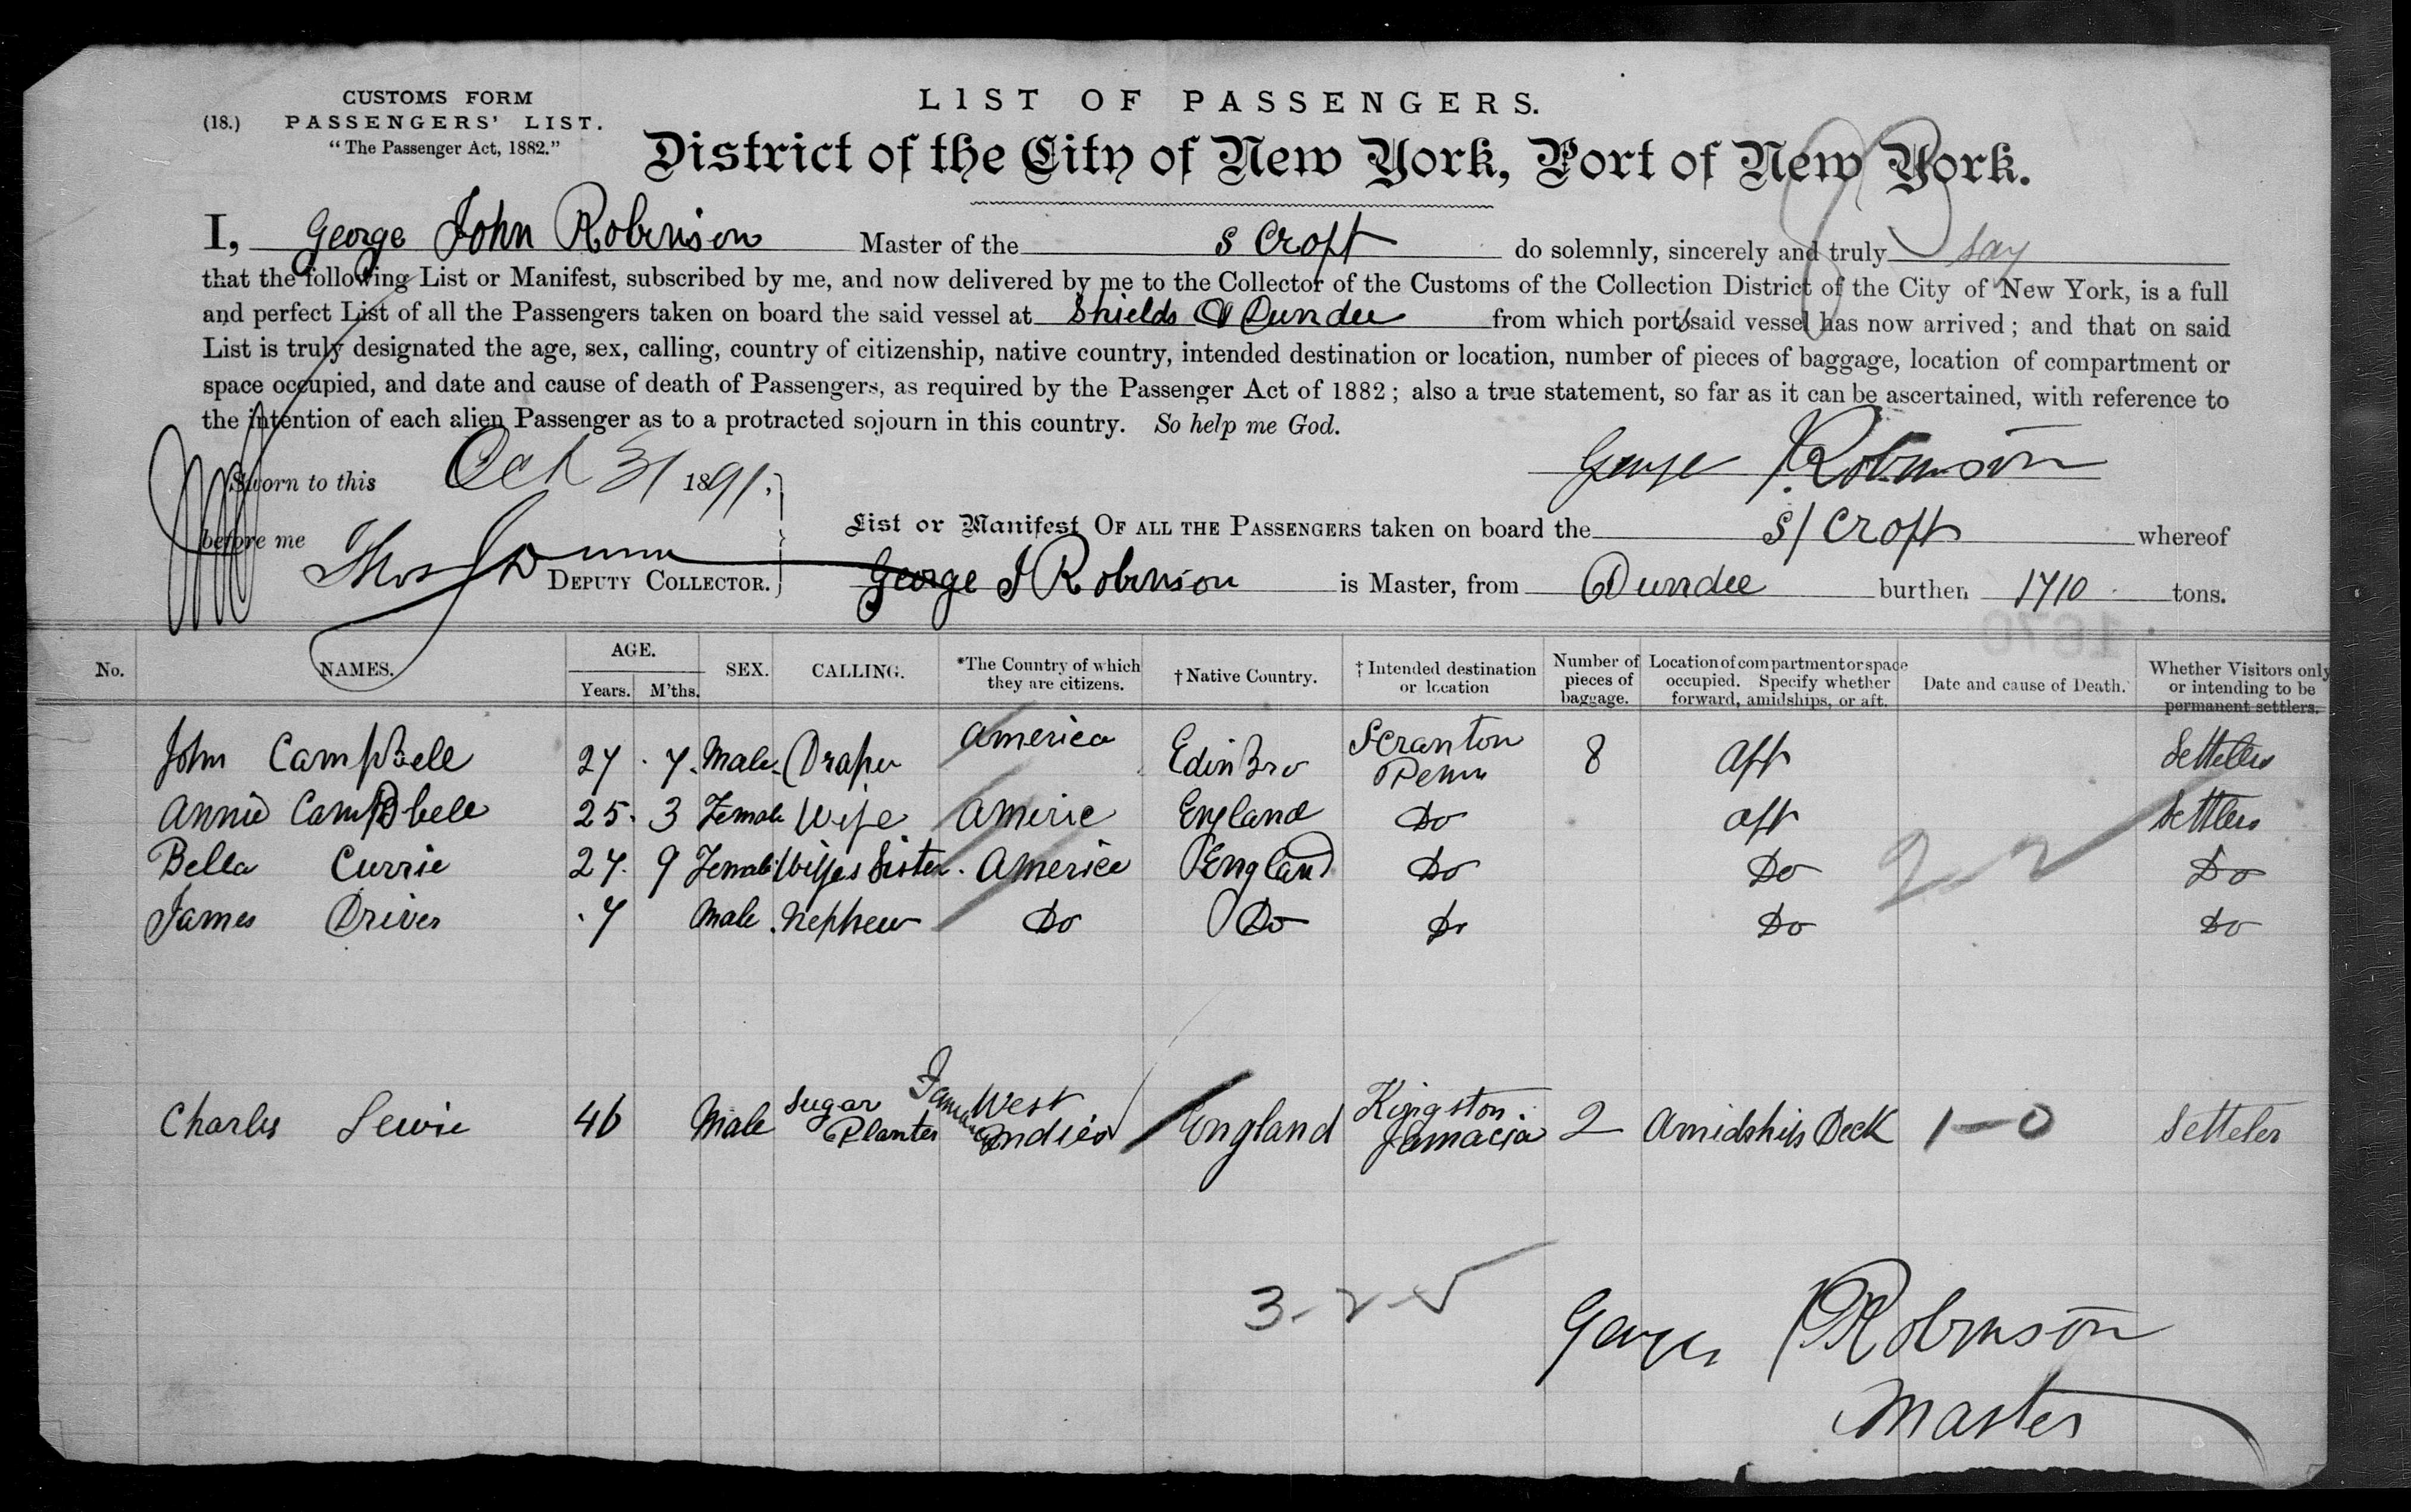 CUSTOMS FORM
(18.) PASSENGERS' LIST.
"The Passenger Act, 1882."
LIST OF PASSENGERS.
District of the City of New York, Port of New York.
I, George John Robinson Master of the S Croft do solemnly, sincerely and truly say
that the following List or Manifest, subscribed by me, and now delivered by me to the Collector of the Customs of the Collection District of the City of New York, is a full
and perfect List of all the Passengers taken on board the said vessel at Shields & Dundee from which ports said vessel has now arrived; and that on said
List is truly designated the age, sex, calling, country of citizenship, native country, intended destination or location, number of pieces of baggage, location of compartment or
space occupied, and date and cause of death of Passengers, as required by the Passenger Act of 1882; also a true statement, so far as it can be ascertained, with reference to
the intention of each alien Passenger as to a protracted sojourn in this country. So help me God.
George J. Robinson
Sworn to this Oct 31 1891.
List or Manifest OF ALL THE PASSENGERS taken on board the S/ Croft whereof
before me Thos J Dunn DEPUTY COLLECTOR.
George J Robinson is Master, from Dundee burthen 1710 tons.
1670
No. NAMES. AGE. Years. M'ths. SEX. CALLING. *The Country of which they are citizens. † Native Country. † Intended destination or location Number of pieces of baggage. Location of compartment or space occupied. Specify whether forward, amidships, or aft. Date and cause of Death. Whether Visitors only or intending to be permanent settlers.
John CampBell 27 7 Male Draper America EdinBro Scranton Penn 8 Aft Settelers
Annie CampBbell 25 3 Female Wife Americ England Do aft Settlers
Bella Currie 27 9 Female Wifes Sister America England Do Do Do
James Driver 7 Male Nephew Do Do Do Do Do
2-2
Charles Lewie 46 Male Sugar Planter West Indies England Kingston Jamacia 2 Amidships Deck 1-0 Setteler
3-2-5
George J Robinson
Master